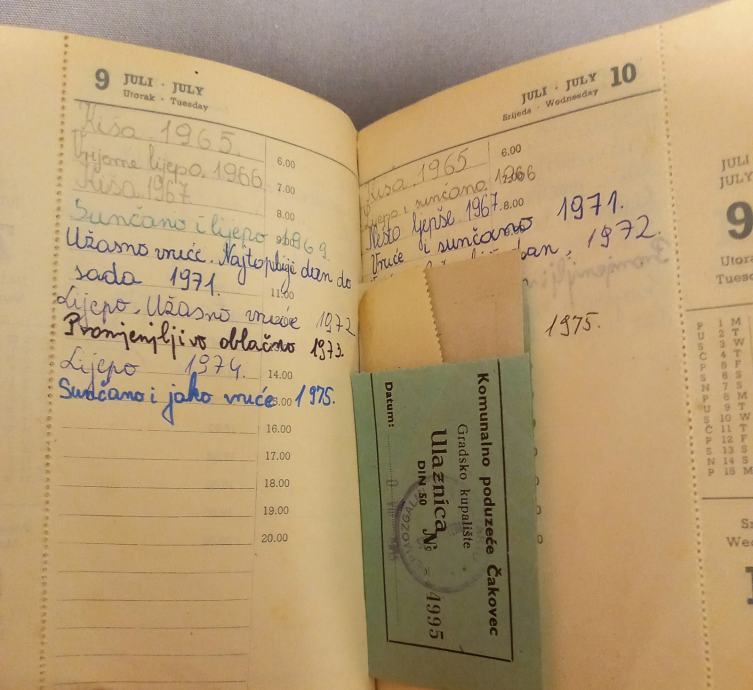 9 JULI · JULY
Utorak · Tuesday
Kiša 1965.
Vrijeme lijepo 1966
6.00
Kiša 1967
7.00
Sunčano i lijepo 1969.
8.00
Užasno vruće. Najtopliji dan do
sada 1971.
11.00
Lijepo. Užasno vruće 1972
Promjenjljivo oblačno 1973.
Lijepo 1974.
14.00
Sunčano i jako vruće 1975.
16.00
17.00
18.00
19.00
20.00
JULI · JULY 10
Srijeda · Wednesday
Kiša 1965
6.00
Lijepo i sunčano 1966
Nešto ljepše 1967.
8.00
Vruće i sunčano 1971.
dan, 1972.
1975.
Komunalno poduzeće Čakovec
Gradsko kupalište
Ulaznica
DIN 50
№ 4995
Datum:
JULI
JULY
9
P 1 M
U 2 T
S 3 W
Č 4 T
P 5 F
S 6 S
N 7 S
P 8 M
U 9 T
S 10 W
Č 11 T
P 12 F
S 13 S
N 14 S
P 15 M